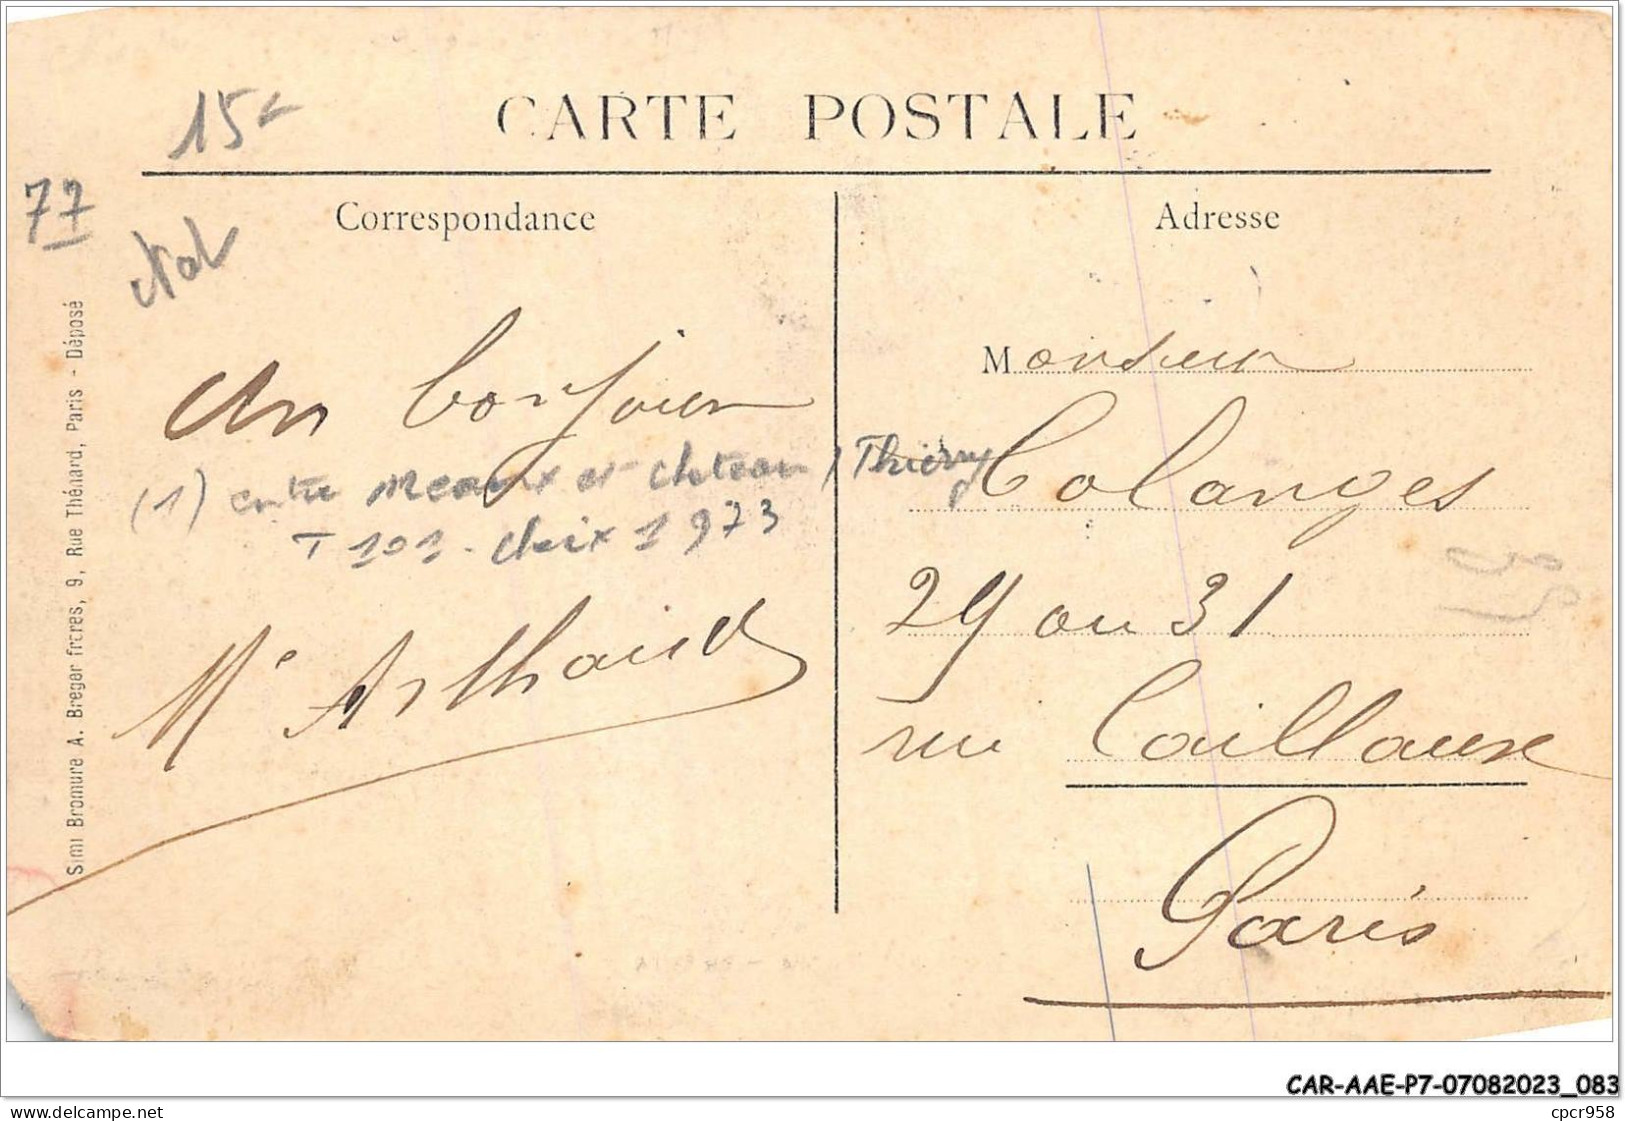 CARTE POSTALE
15
77
Correspondance
Adresse
Un bonjour
(1) entre Meaux et chateau / Thierry
T 101 - choix 1 973
Me Arthaud
Monsieur
Colanges
29 ou 31
rue Caillaux
Paris
Simi Bromure A. Breger frères, 9, Rue Thénard, Paris - Déposé
CAR-AAE-P7-07082023_083
www.delcampe.net
cpcr958